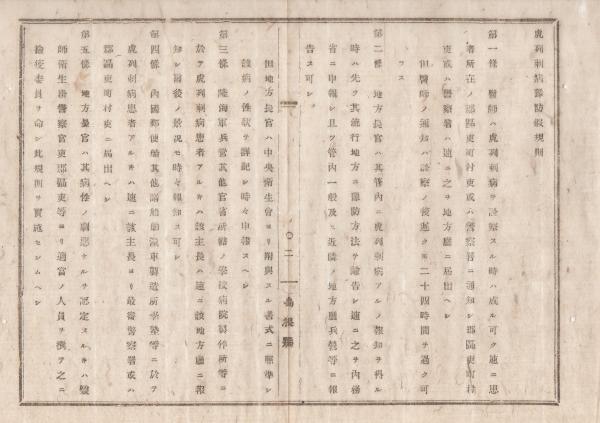 虎列刺病豫防假規則
第一條 醫師ハ虎列刺病ヲ診察スル時ハ成ル可ク速ニ患
者所在ノ郡區吏町村吏或ハ警察署ニ通知シ郡區吏町村
吏或ハ警察署ハ速ニ之ヲ地方廳ニ屆出ヘシ
但醫師ノ通知ハ診察ノ後遲クモ二十四時間ヲ過ク可
ラス
第二條 地方長官ハ其管內ニ虎列刺病アルノ報知ヲ得ル
時ハ先ク其流行地方ニ豫防方法ヲ諭告シ速ニ之ヲ內務
省ニ申報シ且ツ管內一般及ヒ近隣ノ地方廳兵營等ニ報
告ス可シ
〇二
但地方長官ハ中央衛生會ヨリ附與スル書式ニ照準シ
該病ノ性狀ヲ詳記シ時々申報スヘシ
第三條 陸海軍兵營其他官省所轄ノ學校病院製作所等ニ
於テ虎列刺病患者アルキハ該主長ハ速ニ該地方廳ニ報
知シ爾後ノ景況モ時々報知ス可シ
第四條 內國郵便船其他諸船舶滊車製造所會塾等ニ於テ
虎列刺病患者アルキハ速ニ該主長ヨリ最寄警察署或ハ
郡區吏町村吏ニ屆出ヘシ
第五條 地方長官ハ其病性ノ劇惡ナルヲ認定スルキハ醫
師衛生掛警察官吏郡區吏等ヨリ適當ノ人員ヲ撰テ之ニ
檢疫委員ヲ命シ此規則ヲ實施セシムヘシ